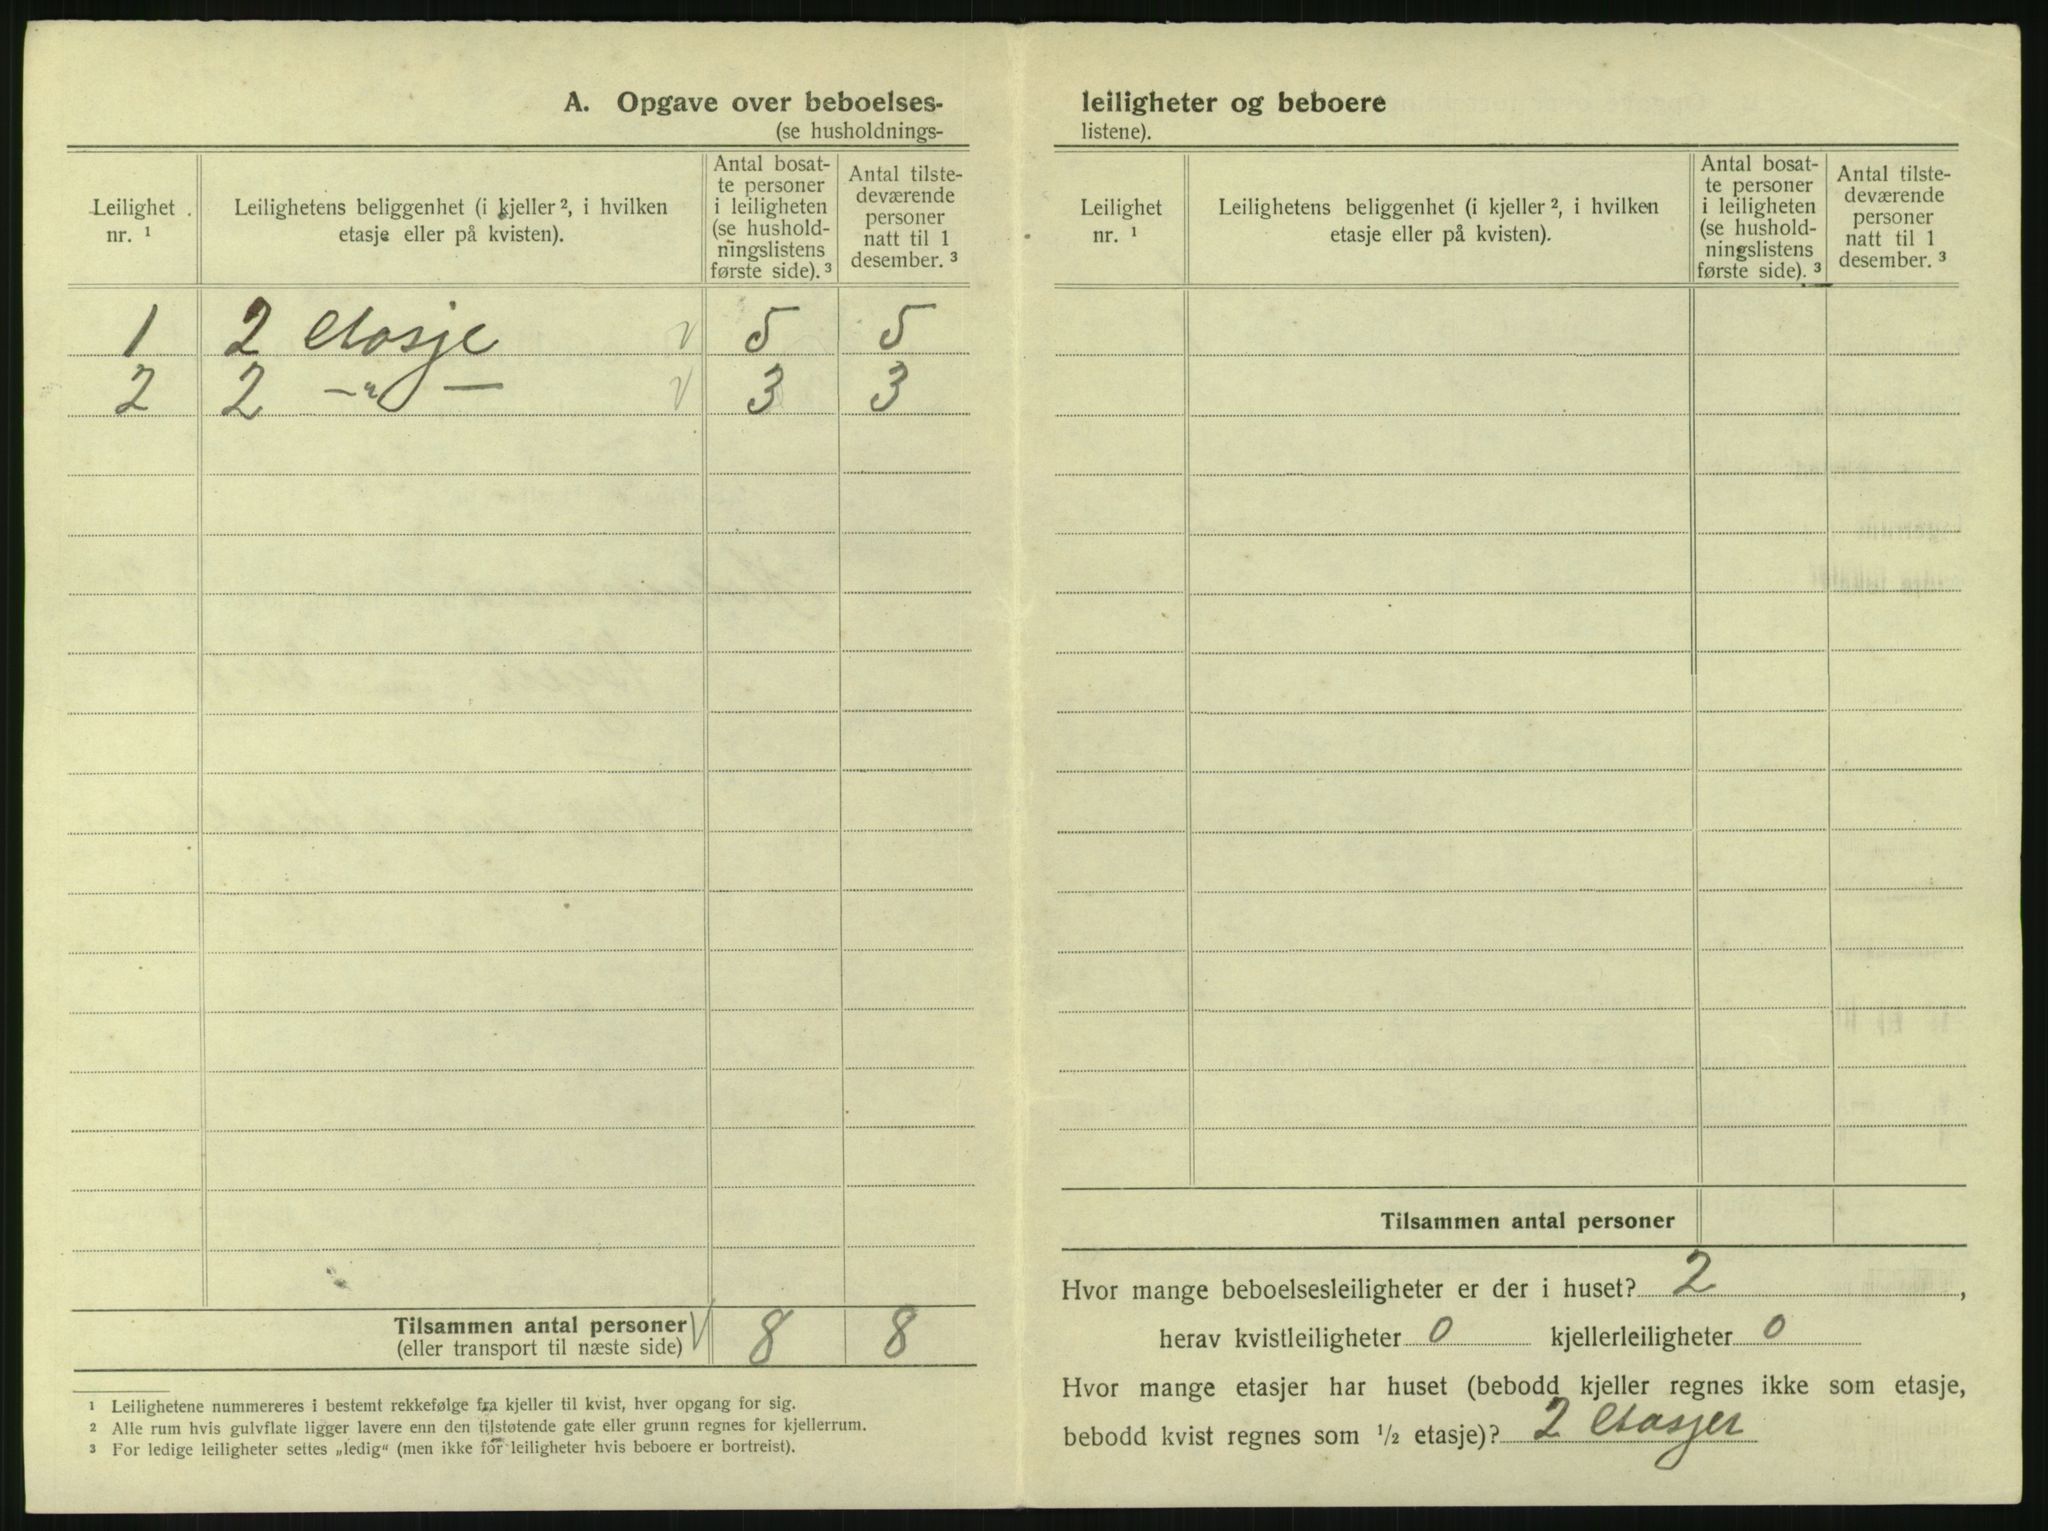 A. Opgave over beboelses-
(se husholdnings-
Leilighet nr. ¹
Leilighetens beliggenhet (i kjeller ², i hvilken
etasje eller på kvisten).
Antal bosat-
te personer
i leiligheten
(se hushold-
ningslistens
første side). ³
Antal tilste-
deværende
personer
natt til 1
desember. ³
1 2 etasje 5 5
2 2 — „ — 3 3
Tilsammen antal personer 8 8
(eller transport til næste side)
¹ Leilighetene nummereres i bestemt rekkefølge fra kjeller til kvist, hver opgang for sig.
² Alle rum hvis gulvflate ligger lavere enn den tilstøtende gate eller grunn regnes for kjellerrum.
³ For ledige leiligheter settes „ledig“ (men ikke for leiligheter hvis beboere er bortreist).
leiligheter og beboere
listene).
Leilighet
nr. ¹
Leilighetens beliggenhet (i kjeller ², i hvilken
etasje eller på kvisten).
Antal bosat-
te personer
i leiligheten
(se hushold-
ningslistens
første side). ³
Antal tilste-
deværende
personer
natt til 1
desember. ³
Tilsammen antal personer
Hvor mange beboelsesleiligheter er der i huset? 2 ,
herav kvistleiligheter 0 kjellerleiligheter 0
Hvor mange etasjer har huset (bebodd kjeller regnes ikke som etasje,
bebodd kvist regnes som ½ etasje)? 2 etasjer